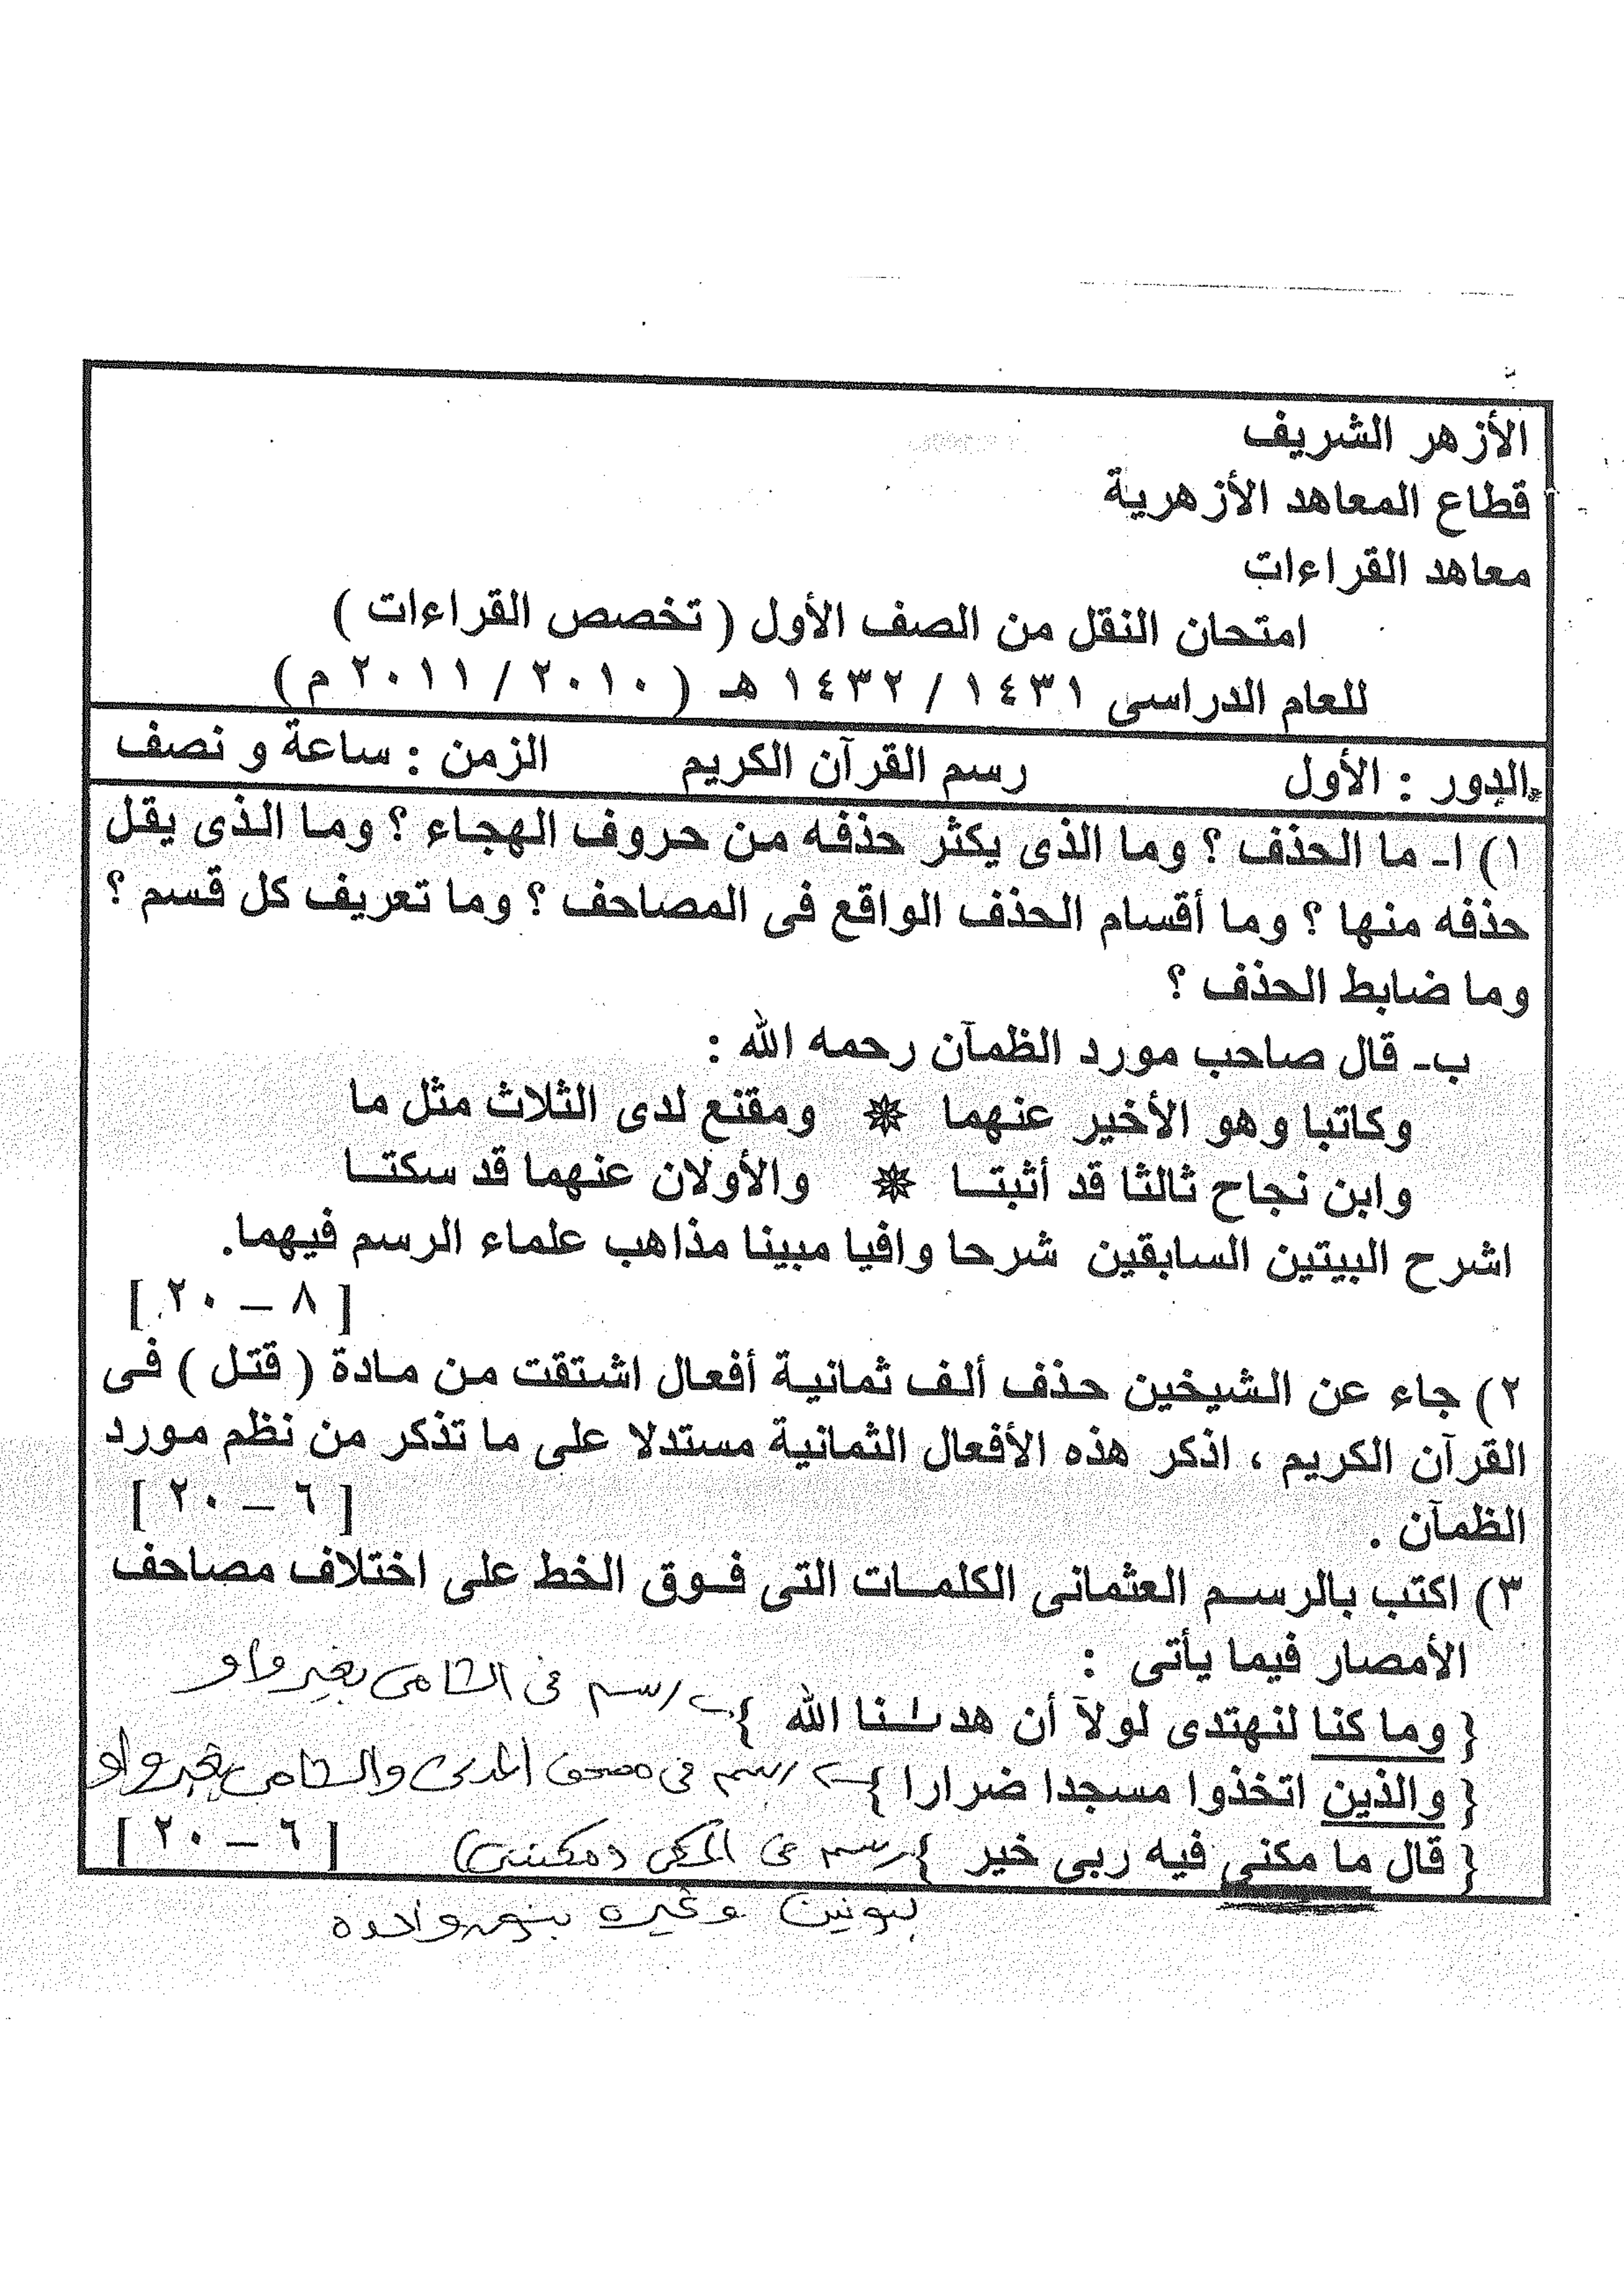 الأزهر الشريف
قطاع المعاهد الأزهرية
معاهد القراءات
امتحان النقل من الصف الأول ( تخصص القراءات )
للعام الدراسى ١٤٣١ / ١٤٣٢ هـ ( ٢٠١٠ / ٢٠١١ م )
الدور : الأول رسم القرآن الكريم الزمن : ساعة و نصف
١) ا- ما الحذف ؟ وما الذى يكثر حذفه من حروف الهجاء ؟ وما الذى يقل
حذفه منها ؟ وما أقسام الحذف الواقع فى المصاحف ؟ وما تعريف كل قسم ؟
وما ضابط الحذف ؟
ب- قال صاحب مورد الظمآن رحمه الله :
وكاتبا وهو الأخير عنهما ۞ ومقنع لدى الثلاث مثل ما
وابن نجاح ثالثا قد أثبتــا ۞ والأولان عنهما قد سكتــا
اشرح البيتين السابقين شرحا وافيا مبينا مذاهب علماء الرسم فيهما.
[ ٨ – ٢٠ ]
٢) جاء عن الشيخين حذف ألف ثمانية أفعال اشتقت من مادة ( قتل ) فى
القرآن الكريم ، اذكر هذه الأفعال الثمانية مستدلا على ما تذكر من نظم مورد
الظمآن . [ ٦ – ٢٠ ]
٣) اكتب بالرســم العثمانى الكلمــات التى فــوق الخط على اختلاف مصاحف
الأمصار فيما يأتى :
{ وما كنا لنهتدى لولآ أن هدىٰنا الله } ← رسم فى الشامى بغير واو
{ والذين اتخذوا مسجدا ضرارا } ← رسم فى مصحف المدنى والشامى بغير واو
{ قال ما مكنى فيه ربى خير } رسم فى المكى (مكننى) [ ٦ – ٢٠ ]
بنونين وغيره بنون واحدة